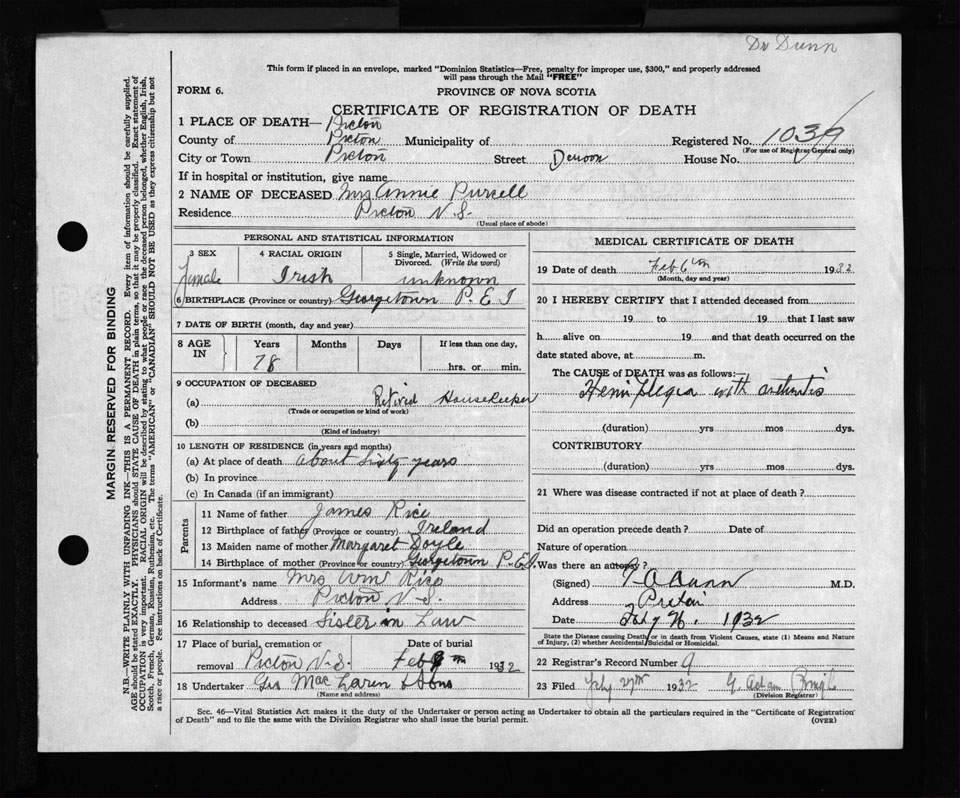 Dr Dunn
This form if placed in an envelope, marked "Dominion Statistics—Free, penalty for improper use, $300," and properly addressed
will pass through the Mail "FREE"
FORM 6.
PROVINCE OF NOVA SCOTIA
CERTIFICATE OF REGISTRATION OF DEATH
1 PLACE OF DEATH— Pictou
County of Pictou Municipality of Registered No. 1039
(For use of Registrar General only)
City or Town Pictou Street Denoon House No.
If in hospital or institution, give name
2 NAME OF DECEASED Mrs Annie Purcell
Residence Pictou N.S.
(Usual place of abode)
PERSONAL AND STATISTICAL INFORMATION
3 SEX 4 RACIAL ORIGIN 5 Single, Married, Widowed or Divorced. (Write the word)
Female Irish unknown
6 BIRTHPLACE (Province or country) Georgetown P.E.I
7 DATE OF BIRTH (month, day and year)
8 AGE IN Years Months Days If less than one day,
78 hrs. or min.
9 OCCUPATION OF DECEASED
(a) Retired Housekeeper
(Trade or occupation or kind of work)
(b)
(Kind of industry)
10 LENGTH OF RESIDENCE (in years and months)
(a) At place of death About Sixty years
(b) In province
(c) In Canada (if an immigrant)
Parents
11 Name of father James Rice
12 Birthplace of father (Province or country) Ireland
13 Maiden name of mother Margaret Doyle
14 Birthplace of mother (Province or country) Georgetown P.E.I.
15 Informant's name Mrs Wm
Address Pictou N.S.
16 Relationship to deceased Sister in Law
17 Place of burial, cremation or removal Pictou N.S. Date of burial Feb 1932
18 Undertaker Geo MacLaren & Sons
(Name and address)
MEDICAL CERTIFICATE OF DEATH
19 Date of death Feb 6th 1932
(Month, day and year)
20 I HEREBY CERTIFY that I attended deceased from
19 to 19 that I last saw
h alive on 19 and that death occurred on the
date stated above, at m.
The CAUSE OF DEATH was as follows:—
Hemiplegia with arthritis
(duration) yrs mos dys.
CONTRIBUTORY
(duration) yrs mos dys.
21 Where was disease contracted if not at place of death?
Did an operation precede death? Date of
Nature of operation
Was there an autopsy?
(Signed) Dunn M.D.
Address Pictou
Date 1932
State the Disease causing Death, or in death from Violent Causes, state (1) Means and Nature
of Injury, (2) whether Accidental, Suicidal or Homicidal.
22 Registrar's Record Number 9
23 Filed 27th 1932 G.
(Division Registrar)
Sec. 46—Vital Statistics Act makes it the duty of the Undertaker or person acting as Undertaker to obtain all the particulars required in the "Certificate of Registration
of Death" and to file the same with the Division Registrar who shall issue the burial permit.
(OVER)
MARGIN RESERVED FOR BINDING
N.B.—WRITE PLAINLY WITH UNFADING INK—THIS IS A PERMANENT RECORD. Every item of information should be carefully supplied.
AGE should be stated EXACTLY. PHYSICIANS should STATE CAUSE OF DEATH in plain terms, so that it may be properly classified. Exact statement of
OCCUPATION is very important. RACIAL ORIGIN will be described by stating to what people or race the deceased person belonged, whether English, Irish,
Scotch, French, German, Russian, Ruthenian, etc. The terms "AMERICAN" or "CANADIAN" SHOULD NOT BE USED as they express citizenship but not
a race or people. See instructions on back of Certificate.